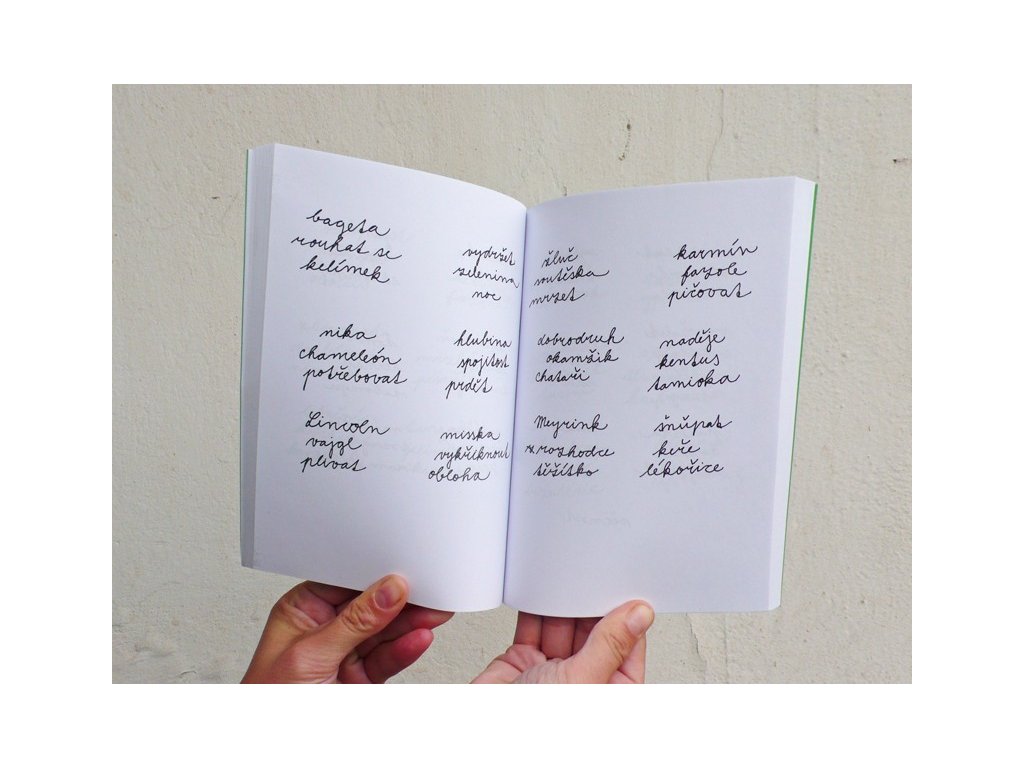 bageta
rouhat se
kelímek
nika
chameleón
potřebovat
Lincoln
vajgl
plivat
vydržet
zelenina
noc
hlubina
spojitost
prdět
misska
vykřiknout
obloha
žluč
soutěska
mrzet
dobrodruh
okamžik
chataři
Meyrink
rozhodce
těžítko
karmín
fazole
pičovat
naděje
kentus
tamioka
šňupat
keře
lékořice